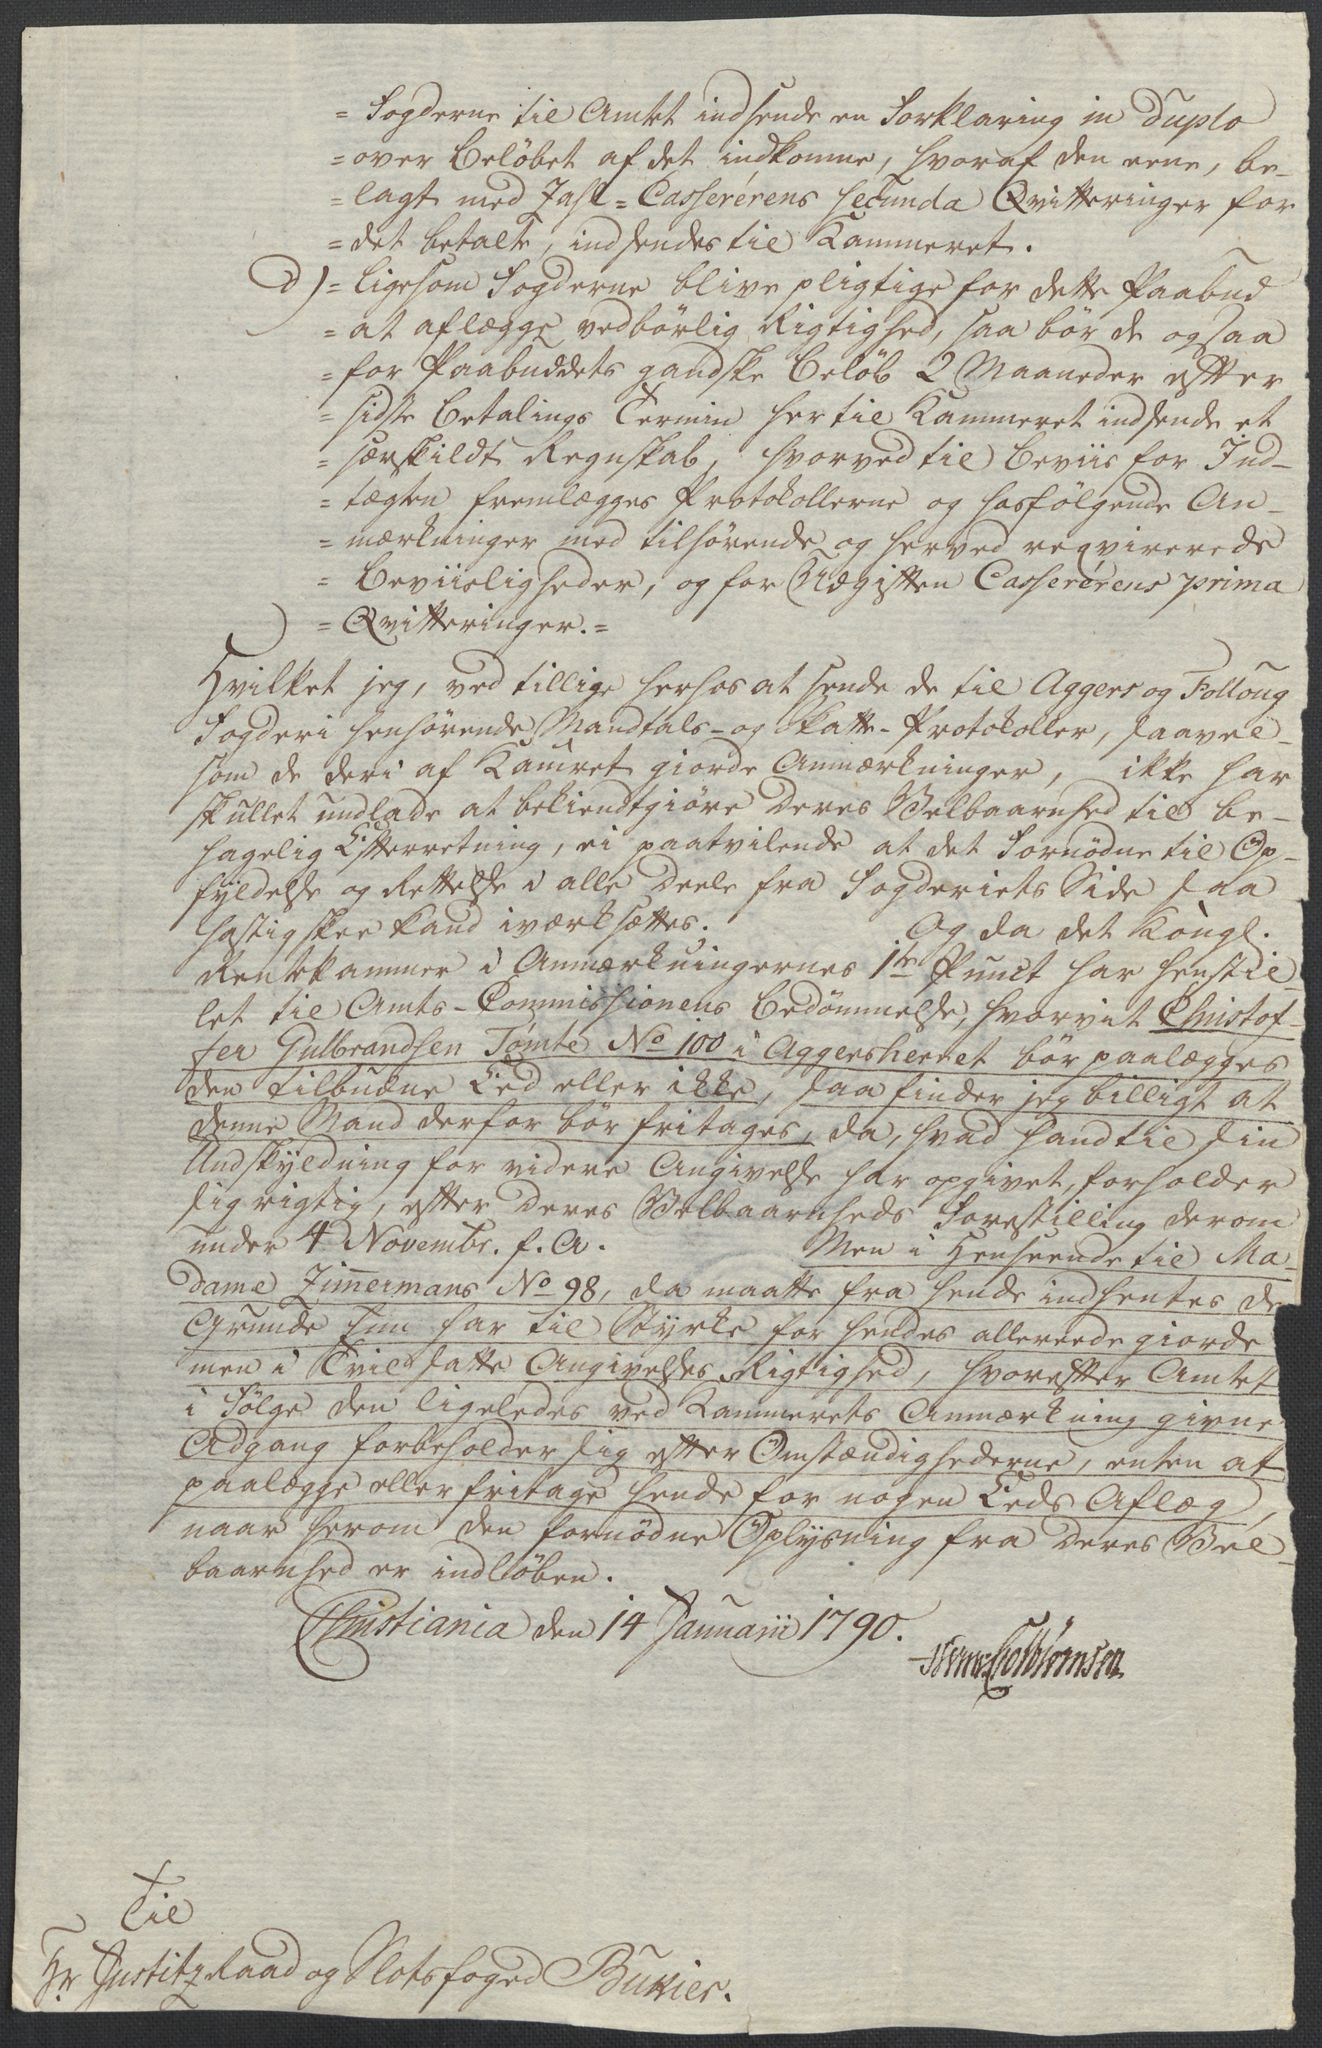 = Fogderne til Amtet indsende en Forklaring in Duplo
= over Beløbet af det indkomne, hvoraf den eene, be-
= lagt med Zahl-Casserérens secunda Qvitteringer for
= det betalte, indsendes til Kammeret.
d) = Ligesom Fogderne blive pligtige for dette Paabud
= at aflægge vedbörlig Rigtighed, saa bör de ogsaa
= for Paabuddets gandske Belöb 2 Maaneder efter
= sidste Betalings Termin her til Kammeret indsende et
= særskildt Regnskab, hvorved til Beviis for Ind-
= tægten fremlægges Protokollerne og hosfölgende An-
= mærkninger med tilhörende og herved reqvirerede
= Beviisligheder, og for Udgiften Casserérens prima
= Qvitteringer. =
Hvilket jeg, ved tillige herhos at sende de til Aggers og Folloug
Fogderi henhörende Mandtals- og Skatte-Protokoller, saavel-
som de deri af Kamret giorde Anmærkninger, ikke har
skullet undlade at bekiendtgiöre Deres Velbaarnhed til be-
hagelig Efterretning, ei paatvilende at det Fornödne til Op-
fyldelse og Rettelse i alle Deele fra Fogderiets Side saa
hastig skee kand iværksættes. Og da det Kongl.
Rentekammer i Anmærkningernes 1te Punct har henstil-
let til Amts-Commissionens Bedömmelse, hvorvit Christof-
fer Gulbrandsen Tömte No 100 i Aggersherret bör paalægges
den tilbudne Eed eller ikke, saa finder jeg billigt at
denne Mand derfor bör fritages, da, hvad hand til sin
Undskyldning for videre Angivelse har opgivet, forholder
sig rigtig, efter Deres Velbaarnheds Forestilling derom
under 4 Novembr. f. A. Men i Henseende til Ma-
dame Zimmermans No 98, da maatte fra hende indhentes de
Grunde hun har til Styrke for hendes allereede giorde
men i Tvil satte Angivelses Rigtighed, hvorefter Amtet
i Fölge den ligeledes ved Kammerets Anmærkning givne
Adgang forbeholder sig efter Omstændighederne, enten at
paalægge eller fritage hende for nogen Eeds Aflæg,
naar herom den fornödne Oplysning fra Deres Vel-
baarnhed er indlöben.
Christiania den 14 Januarii 1790.
Til
Hr Justitz Raad og Slotsfoged